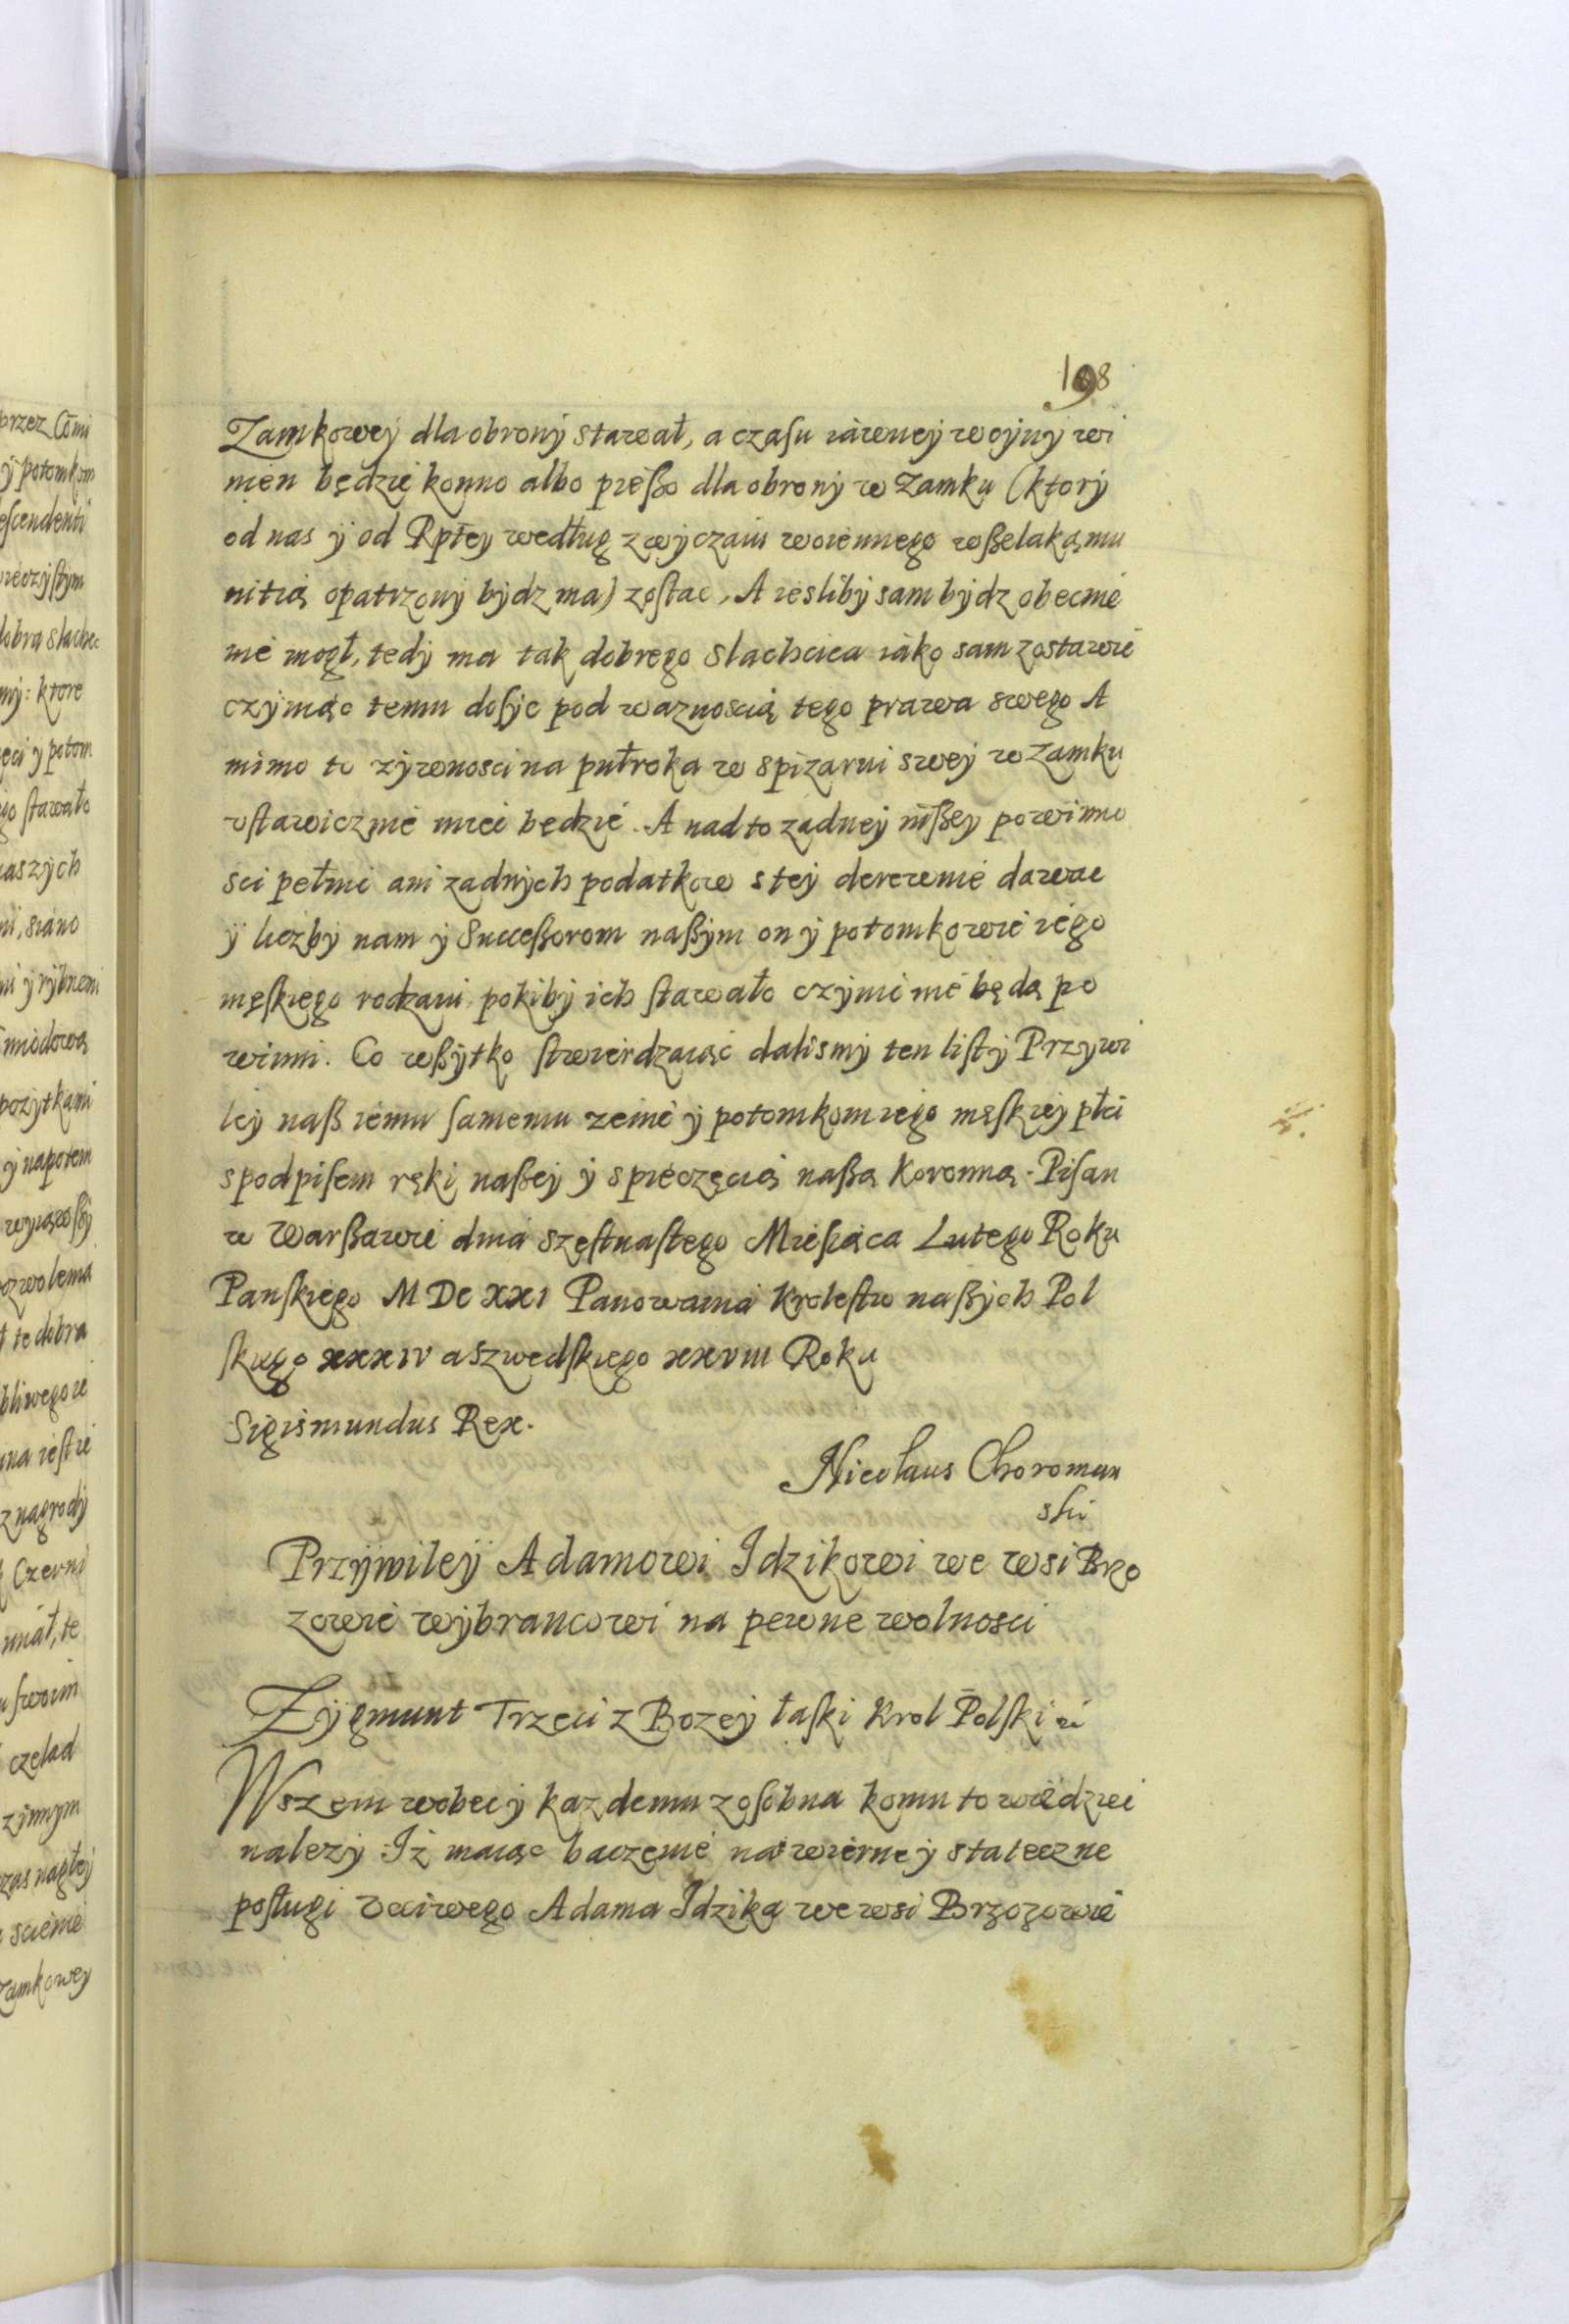 198
Zamkowey dla obrony stawał, a czasu iawney woyny wi
nien będzie konno albo pießo dla obrony w Zamku (ktory
od nas y od Rptey według zwyczaiu woiennego wßelaką mu
nitią opatrzony bydz ma) zostac, A iesliby sam bydz obecnie
nie mogł, tedy ma tak dobrego slachcica iako sam zostawic
czyniąc temu dosyc pod waznoscią tego prawa swego A
mimo to zywnosci na pułroka w spizarni swey w Zamku
vstawicznie miec będzie. A nad to zadney inßey powinno
sci pełnic ani zadnych podatkow s tey derewnie dawac
y liczby nam y Succeßorom naßym on y potomkowie iego
męskiego rodzaiu pokiby ich stawało czynic nie będą po
winni. Co wßytko stwierdzaiąc dalismy ten list y Przywi
ley naß iemu samemu zenie y potomkom iego męskiey płci
s podpisem ręki naßey y s pieczęcią naßą Koronną. Pisan
w Warßawie dnia szestnastego Miesiąca Lutego Roku
Panskiego MDCXXI Panowania Krolestw naßych Pol
skiego XXXIV a Szwedskiego XXVIII Roku
Sigismundus Rex.
Nicolaus Choroman
ski
Przywiley Adamowi Idzikowi we wsi Brzo
zowie wybrancowi na pewne wolnosci
Zygmunt Trzeci z Bozey łaski Krol Polski
Wszem wobec y kazdemu zosobna komu to wiedziec
nalezy Iż maiąc baczenie na wierne y stateczne
posługi Vcciwego Adama Idzika we wsi Brzozowie